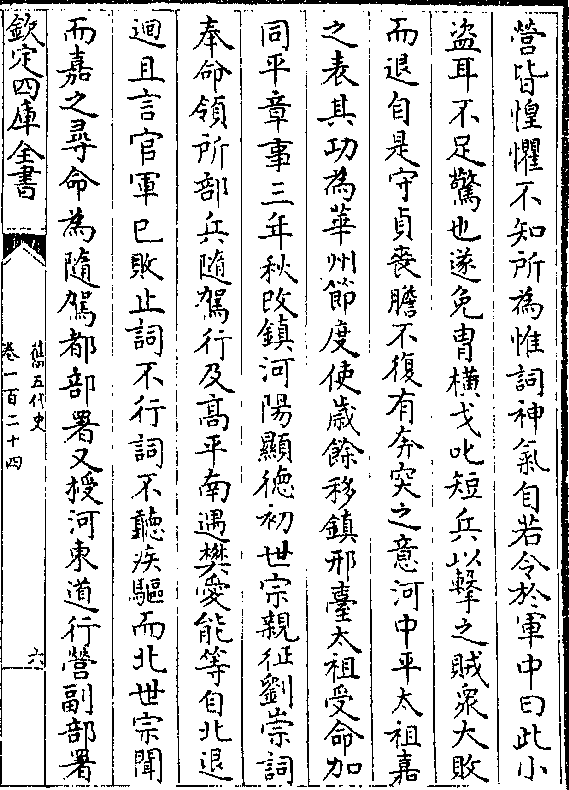 營皆惶懼不知所為惟詞神氣自若令於軍中曰此小
盜耳不足驚也遂免胄橫戈叱短兵以擊之賊衆大敗
而退自是守貞喪膽不復有奔突之意河中平太祖嘉
之表其功為華州節度使歲餘移鎮邢臺太祖受命加
同平章事三年秋改鎮河陽顯德初世宗親征劉崇詞
奉命領所部兵隨駕行及高平南遇樊愛能等自北退
迴且言官軍已敗止詞不行詞不聽疾驅而北世宗聞
而嘉之尋命為隨駕都部署又授河東道行營副部署
欽定四庫全書
舊五代史
卷一百二十四
六